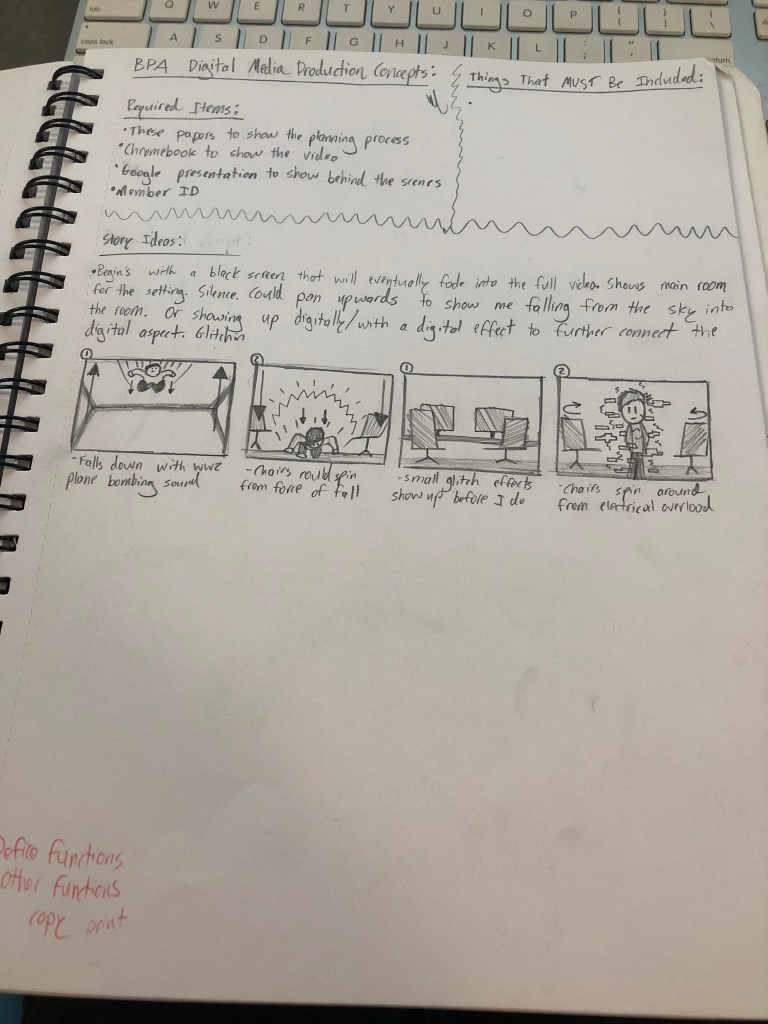 tab Q W E R T Y U I O P { [ } ] | \
caps lock A S D F G H J K L : ; " '
BPA Digital Media Production Concepts:
Required Items:
•These papers to show the planning process
•Chromebook to show the video
•Google presentation to show behind the scenes
•Member ID
Things That MUST Be Included:
•
Story Ideas:
•Begin's with a black screen that will eventually fade into the full video. Shows main room
for the setting. Silence. Could pan upwards to show me falling from the sky into
the room. Or showing up digitally/with a digital effect to further connect the
digital aspect. Glitchin
1
-Falls down with WW2
plane bombing sound
2
-Chairs could spin
from force of fall
1
-small glitch effects
show up before I do
2
-Chairs spin around
from electrical overload
Define functions
other functions
copy print